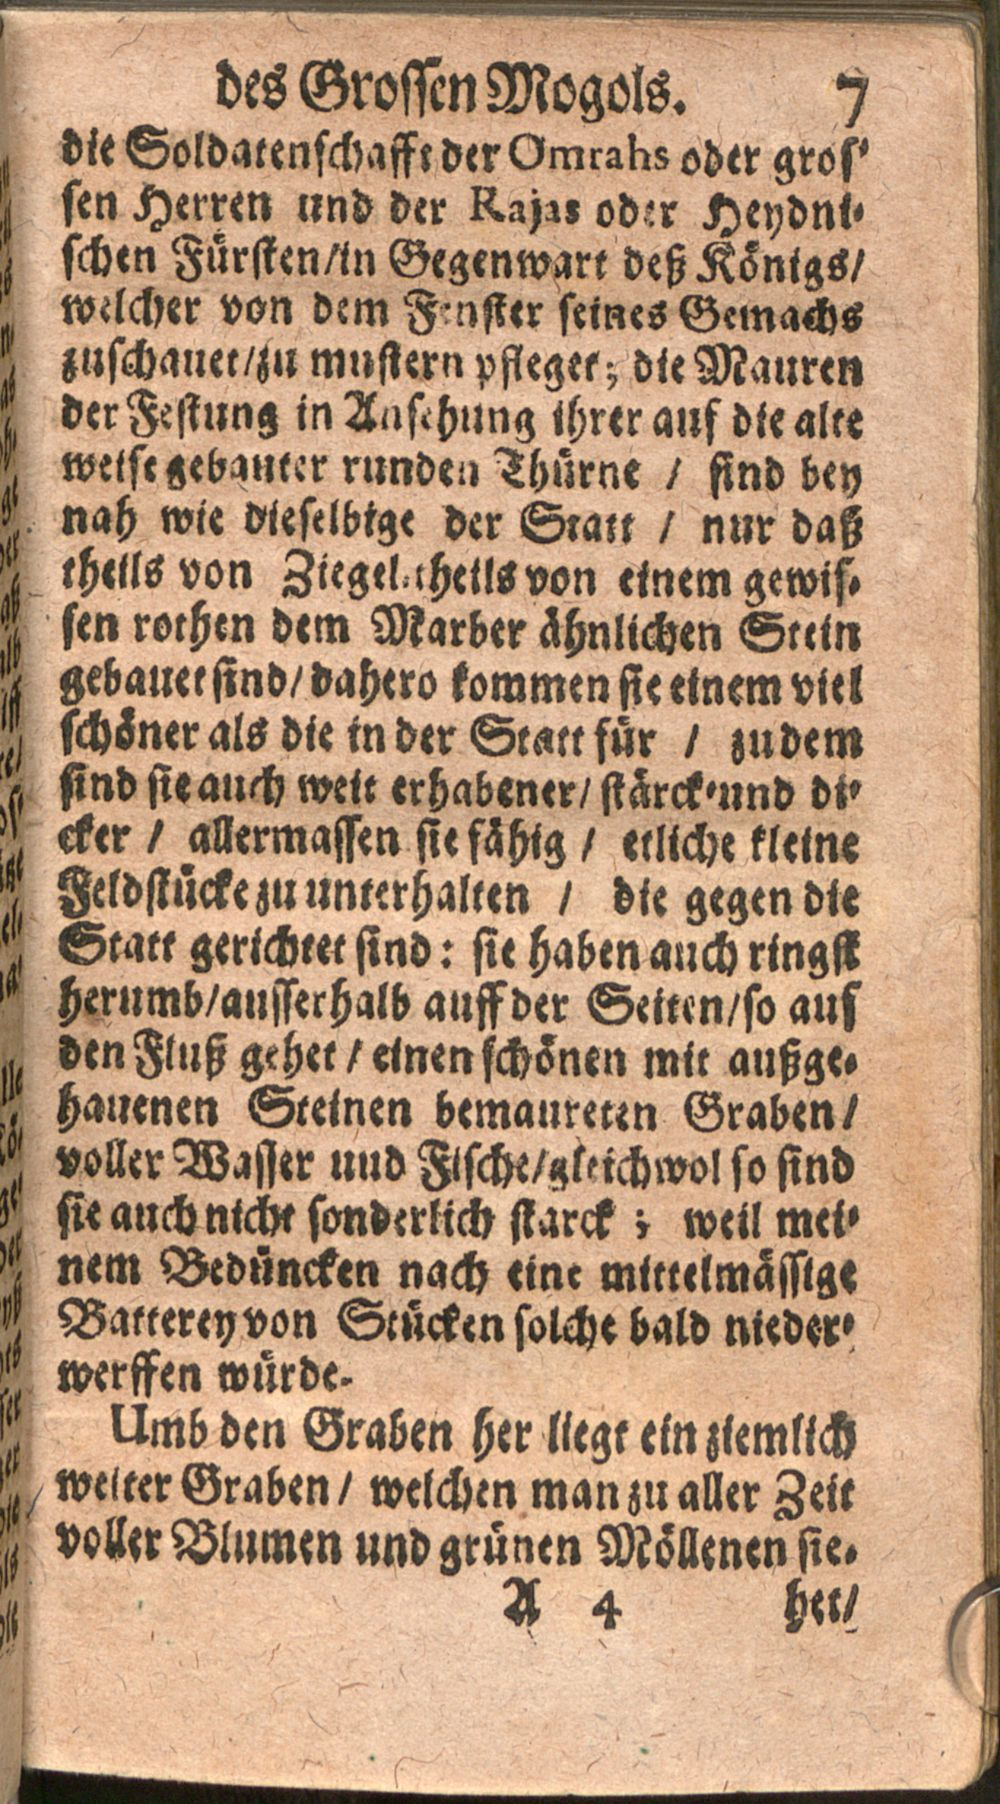 des Grossen Mogols. 7
die Soldatenschafft der Omrahs oder gros-
sen Herren und der Rajas oder Heydni-
schen Fürsten/in Gegenwart deß Königs/
welcher von dem Fenster seines Gemachs
zuschauet/zu mustern pfleget; die Mauren
der Festung in Ansehung ihrer auf die alte
weise gebauter runden Thürne / sind bey
nah wie dieselbige der Statt / nur daß
theils von Ziegel-theils von einem gewis-
sen rothen dem Marber ähnlichen Stein
gebauet sind/dahero kommen sie einem viel
schöner als die in der Statt für / zudem
sind sie auch weit erhabener/stärck-und di-
cker / allermassen sie fähig / etliche kleine
Feldstücke zu unterhalten / die gegen die
Statt gerichtet sind: sie haben auch ringst
herumb/ausserhalb auff der Seiten/so auf
den Fluß gehet / einen schönen mit außge-
hauenen Steinen bemaureten Graben/
voller Wasser uud Fische/gleichwol so sind
sie auch nicht sonderlich starck; weil mei-
nem Bedüncken nach eine mittelmässige
Batterey von Stücken solche bald nieder-
werffen würde.
Umb den Graben her liegt ein ziemlich
weiter Graben / welchen man zu aller Zeit
voller Blumen und grünen Möllenen sie-
A 4 het/